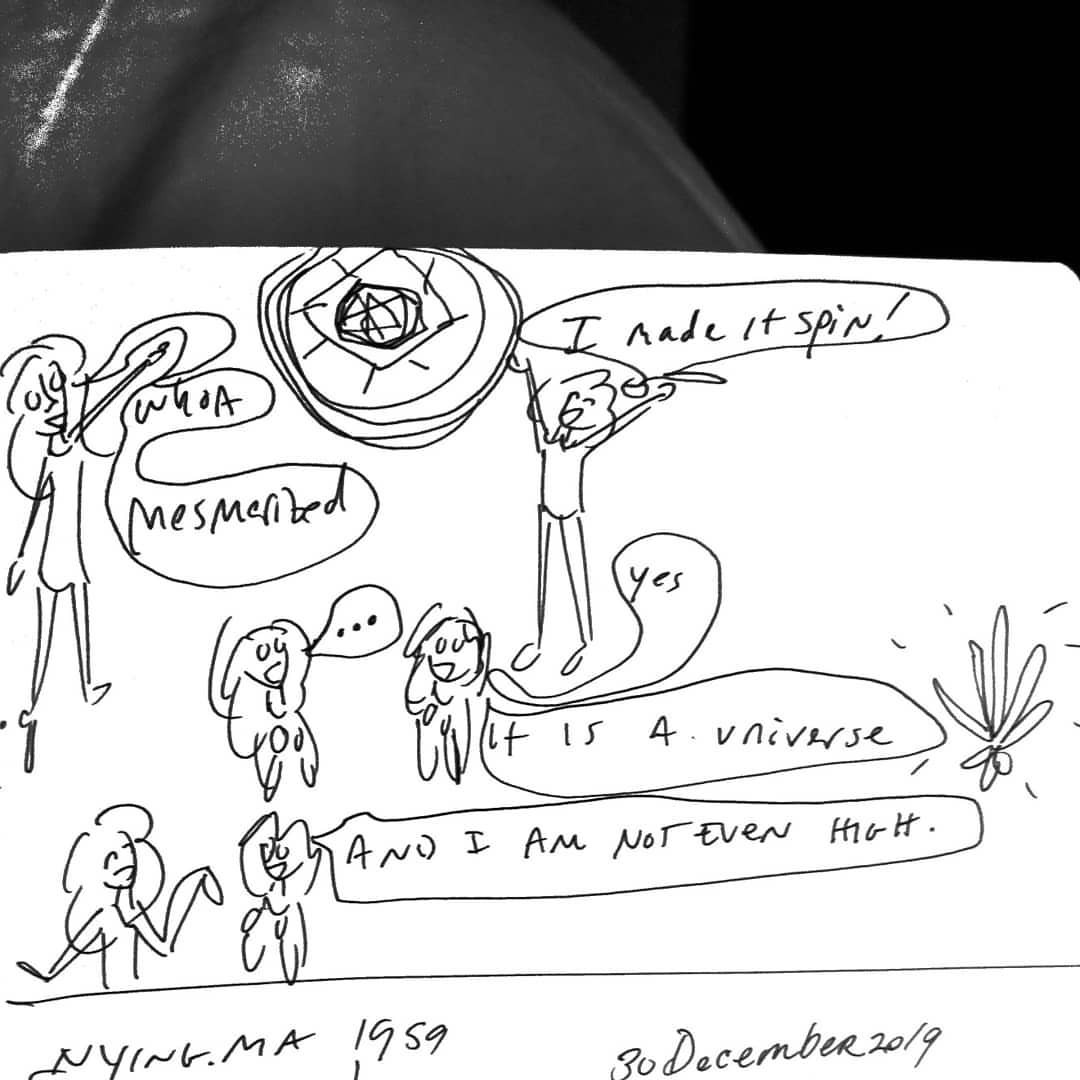 I made it spin!
WHOA
Mesmerized
yes
...
It IS A universe
AND I AM NOT EVEN HIGH.
NYING.MA 1959
30 December 2019